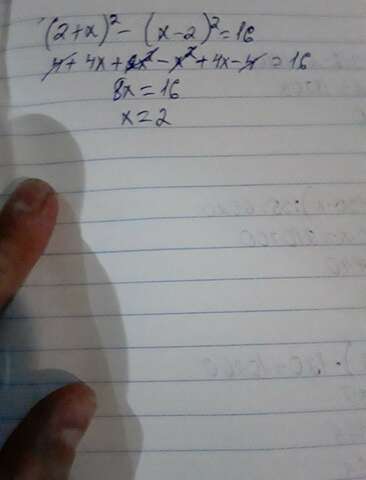 (2+x)² - (x-2)² = 16
4 + 4x + x² - x² + 4x - 4 = 16
8x = 16
x = 2